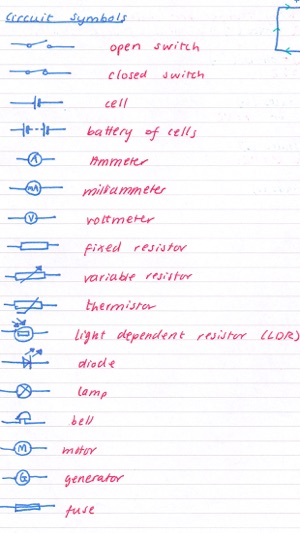 Circuit symbols
open switch
closed switch
cell
battery of cells
A Ammeter
mA milliammeter
V voltmeter
fixed resistor
variable resistor
thermistor
light dependent resistor (LDR)
diode
lamp
bell
M motor
G generator
fuse